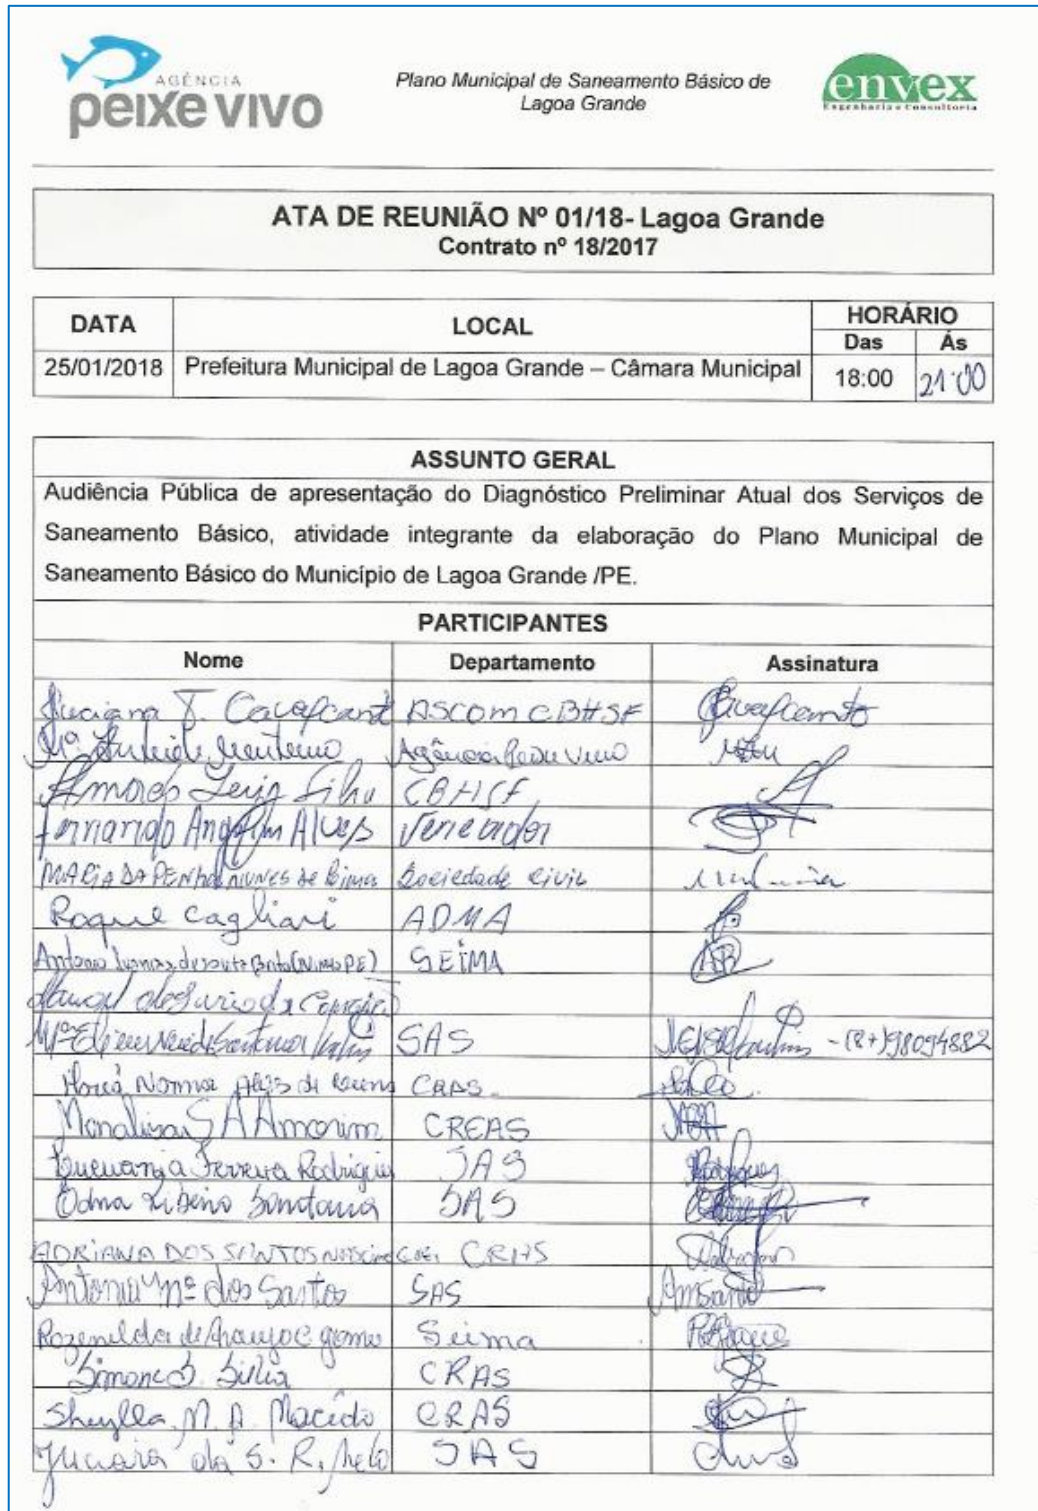 AGÊNCIA
peixe vivo
Plano Municipal de Saneamento Básico de
Lagoa Grande
envex
Engenharia e Consultoria
ATA DE REUNIÃO Nº 01/18- Lagoa Grande
Contrato nº 18/2017
DATA LOCAL HORÁRIO
Das Ás
25/01/2018 Prefeitura Municipal de Lagoa Grande – Câmara Municipal 18:00 21:00
ASSUNTO GERAL
Audiência Pública de apresentação do Diagnóstico Preliminar Atual dos Serviços de
Saneamento Básico, atividade integrante da elaboração do Plano Municipal de
Saneamento Básico do Município de Lagoa Grande /PE.
PARTICIPANTES
Nome Departamento Assinatura
Luciana T. Cavalcanti ASCOM CBHSF
Mª Agência Peixe Vivo
Silva
Fernando Angelim Alves Vereador
MARIA DA PENHA NUNES de Sociedade Civil
Roque Cagliari ADMA
Antonio de Souza SEIMA
Manoel
Mª Santana SAS
Norma Alves de
Monalisa S A Amorim CREAS
Ferreira Rodrigues SAS
Edna Ribeiro Santana SAS
ADRIANA DOS SANTOS CRAS
Antonia Mª dos Santos SAS AmSantos
Rozenilda de Araujo e gomes Seima
Simone S. Silva CRAS
Sheylla M. A. Macêdo CRAS
Juciara da S. R. Melo SAS